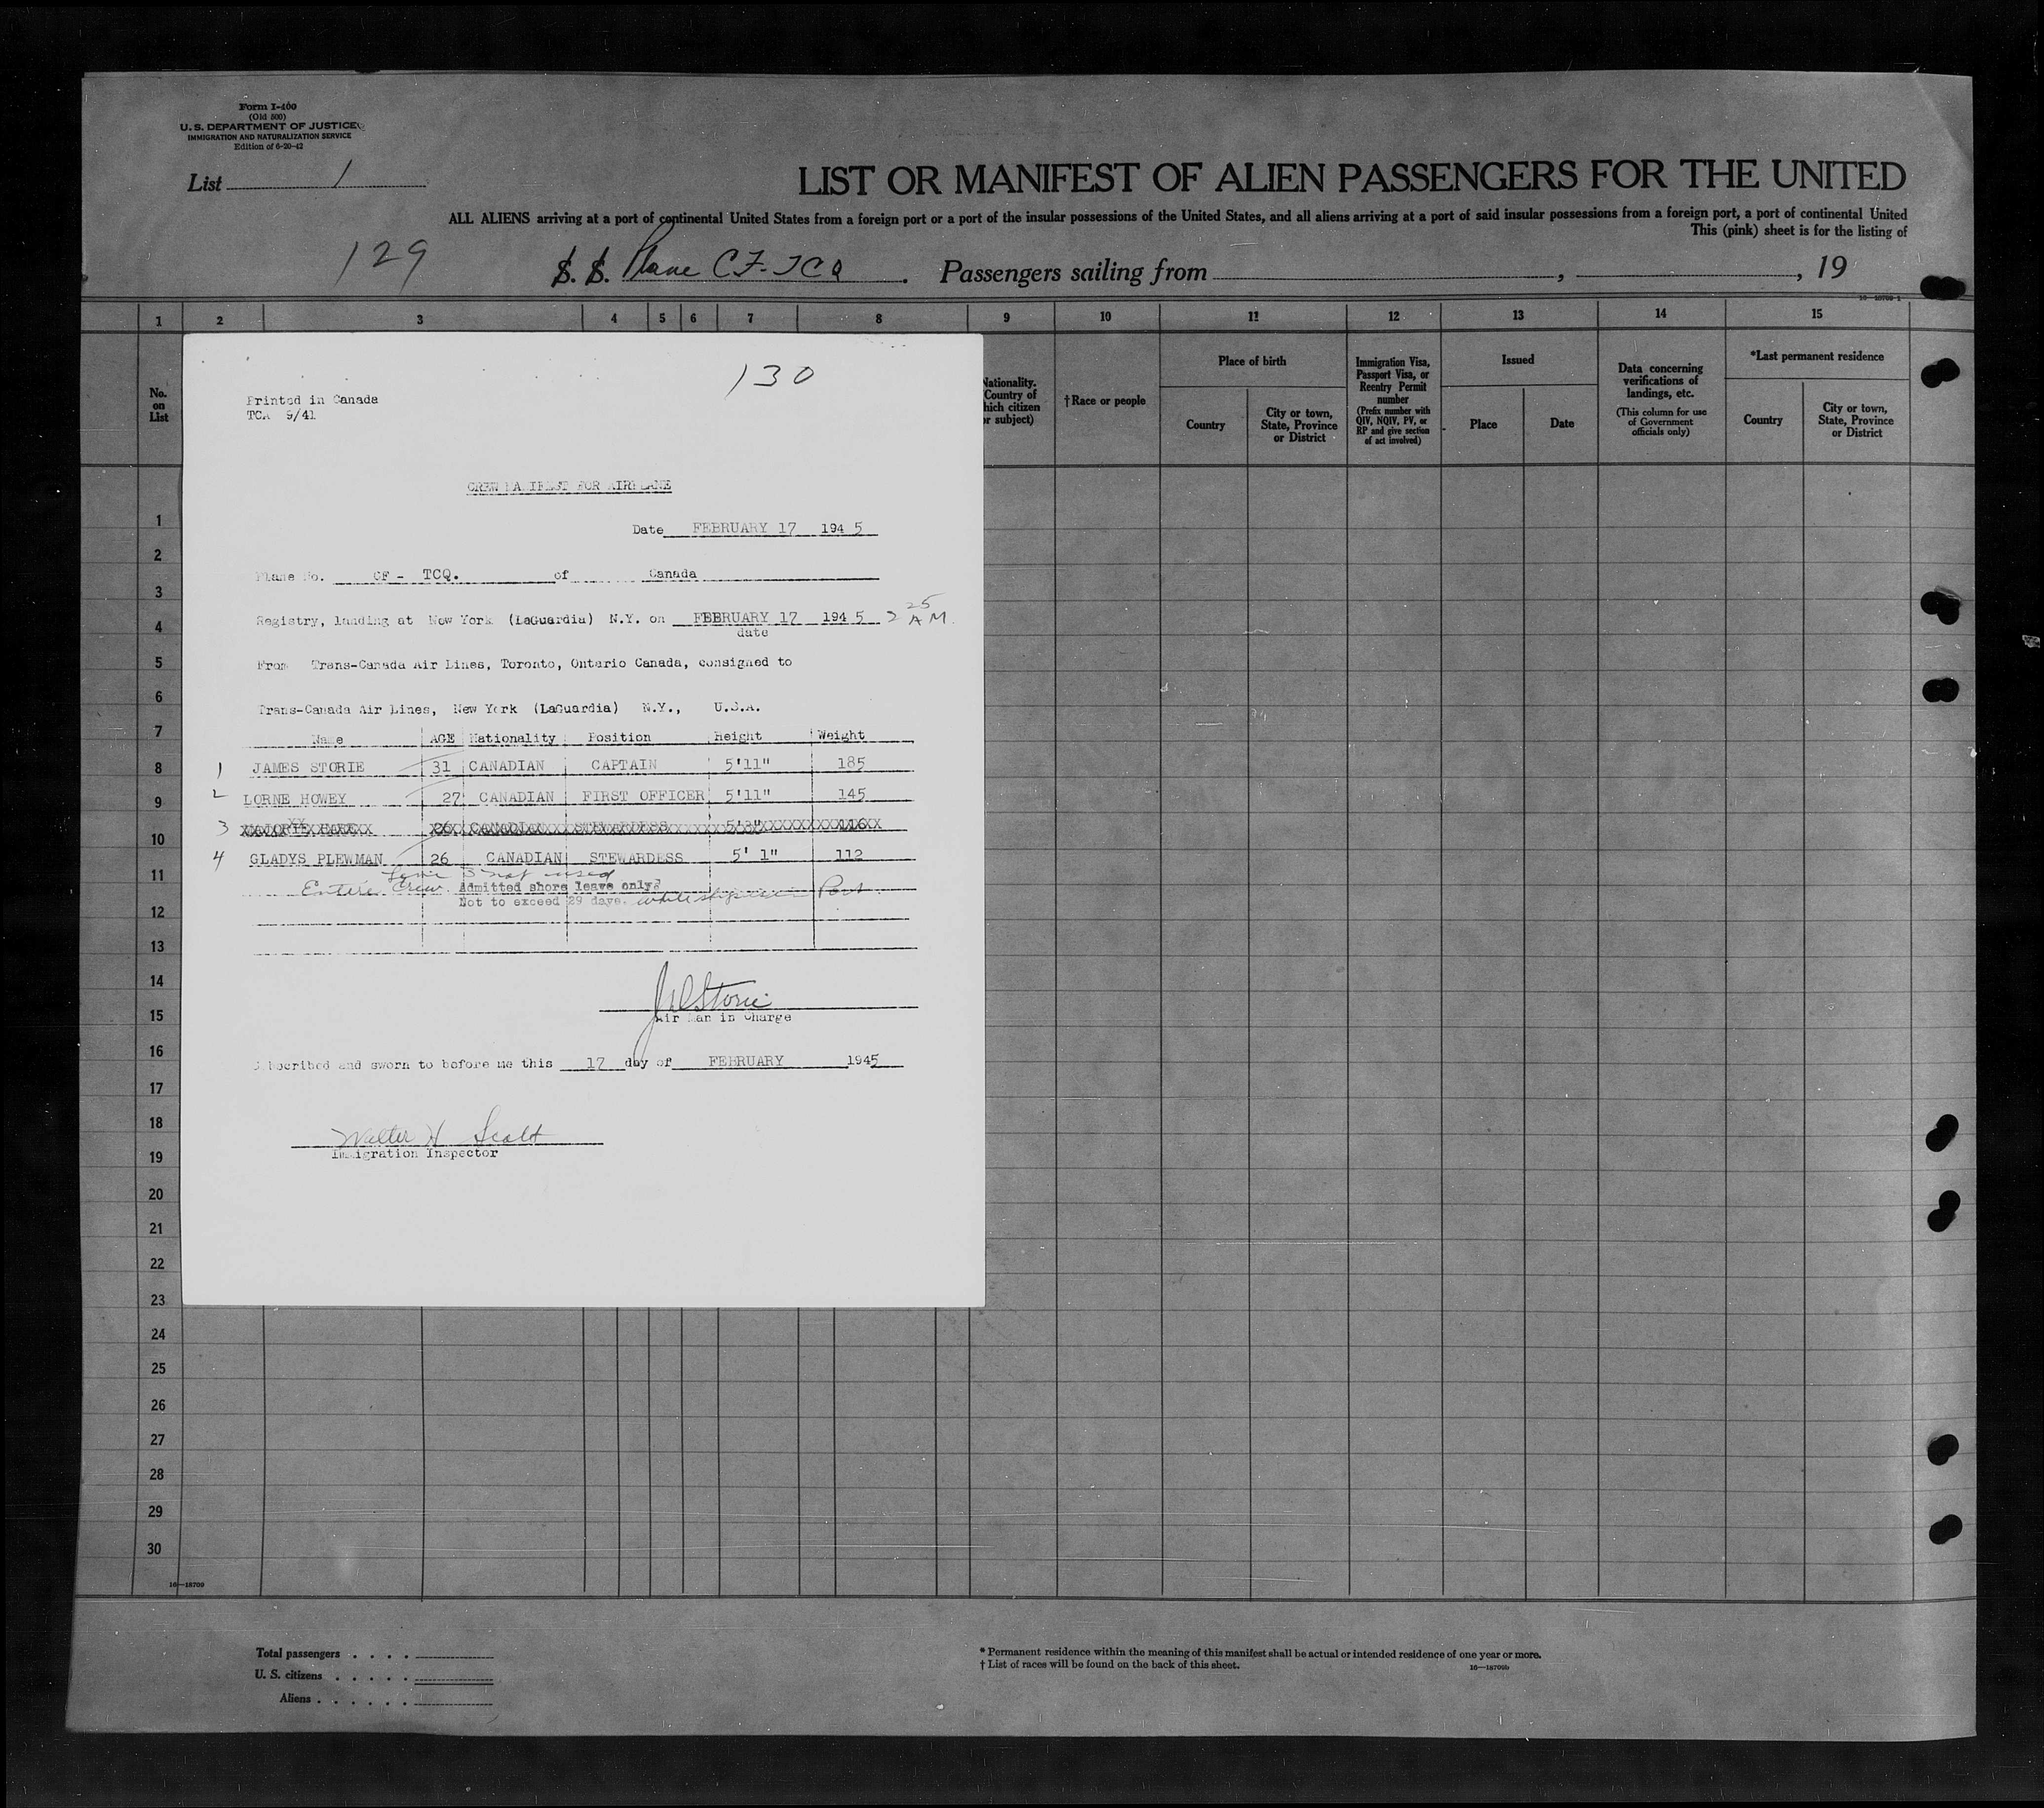 Form I-400
(Old 500)
U. S. DEPARTMENT OF JUSTICE
IMMIGRATION AND NATURALIZATION SERVICE
Edition of 6-20-42
List 1
LIST OR MANIFEST OF ALIEN PASSENGERS FOR THE UNITED
ALL ALIENS arriving at a port of continental United States from a foreign port or a port of the insular possessions of the United States, and all aliens arriving at a port of said insular possessions from a foreign port, a port of continental United
This (pink) sheet is for the listing of
129
S. S. Plane CF-TCQ. Passengers sailing from , , 19
16—18709-1
1 2 3 4 5 6 7 8 9 10 11 12 13 14 15
No. on List
Nationality. Country of which citizen or subject)
†Race or people
Place of birth
Country
City or town, State, Province or District
Immigration Visa, Passport Visa, or Reentry Permit number
(Prefix number with QIV, NQIV, PV, or RP and give section of act involved)
Issued
Place
Date
Data concerning verifications of landings, etc.
(This column for use of Government officials only)
*Last permanent residence
Country
City or town, State, Province or District
130
Printed in Canada
TCA 9/41
CREW MANIFEST FOR AIRPLANE
Date FEBRUARY 17 194 5
Plane No. CF - TCQ. of Canada
Registry, landing at New York (LaGuardia) N.Y. on FEBRUARY 17 194 5 2 25 A M.
date
From Trans-Canada Air Lines, Toronto, Ontario Canada, consigned to
Trans-Canada Air Lines, New York (LaGuardia) N.Y., U.S.A.
Name AGE Nationality Position Height Weight
1 JAMES STORIE 31 CANADIAN CAPTAIN 5'11" 185
2 LORNE HOWEY 27 CANADIAN FIRST OFFICER 5'11" 145
3 26 CANADIAN STEWARDESS 5'3" 116
4 GLADYS PLEWMAN 26 CANADIAN STEWARDESS 5' 1" 112
Line 3 not used
Entire Crew Admitted shore leave only
Not to exceed 29 days. while ship is in Port.
J Storie
Air Man in Charge
Subscribed and sworn to before me this 17 day of FEBRUARY 1945
Walter H Scott
Immigration Inspector
1
2
3
4
5
6
7
8
9
10
11
12
13
14
15
16
17
18
19
20
21
22
23
24
25
26
27
28
29
30
16—18709
Total passengers . . . .
U. S. citizens . . . . .
Aliens . . . . . .
* Permanent residence within the meaning of this manifest shall be actual or intended residence of one year or more.
† List of races will be found on the back of this sheet.
16—18709b